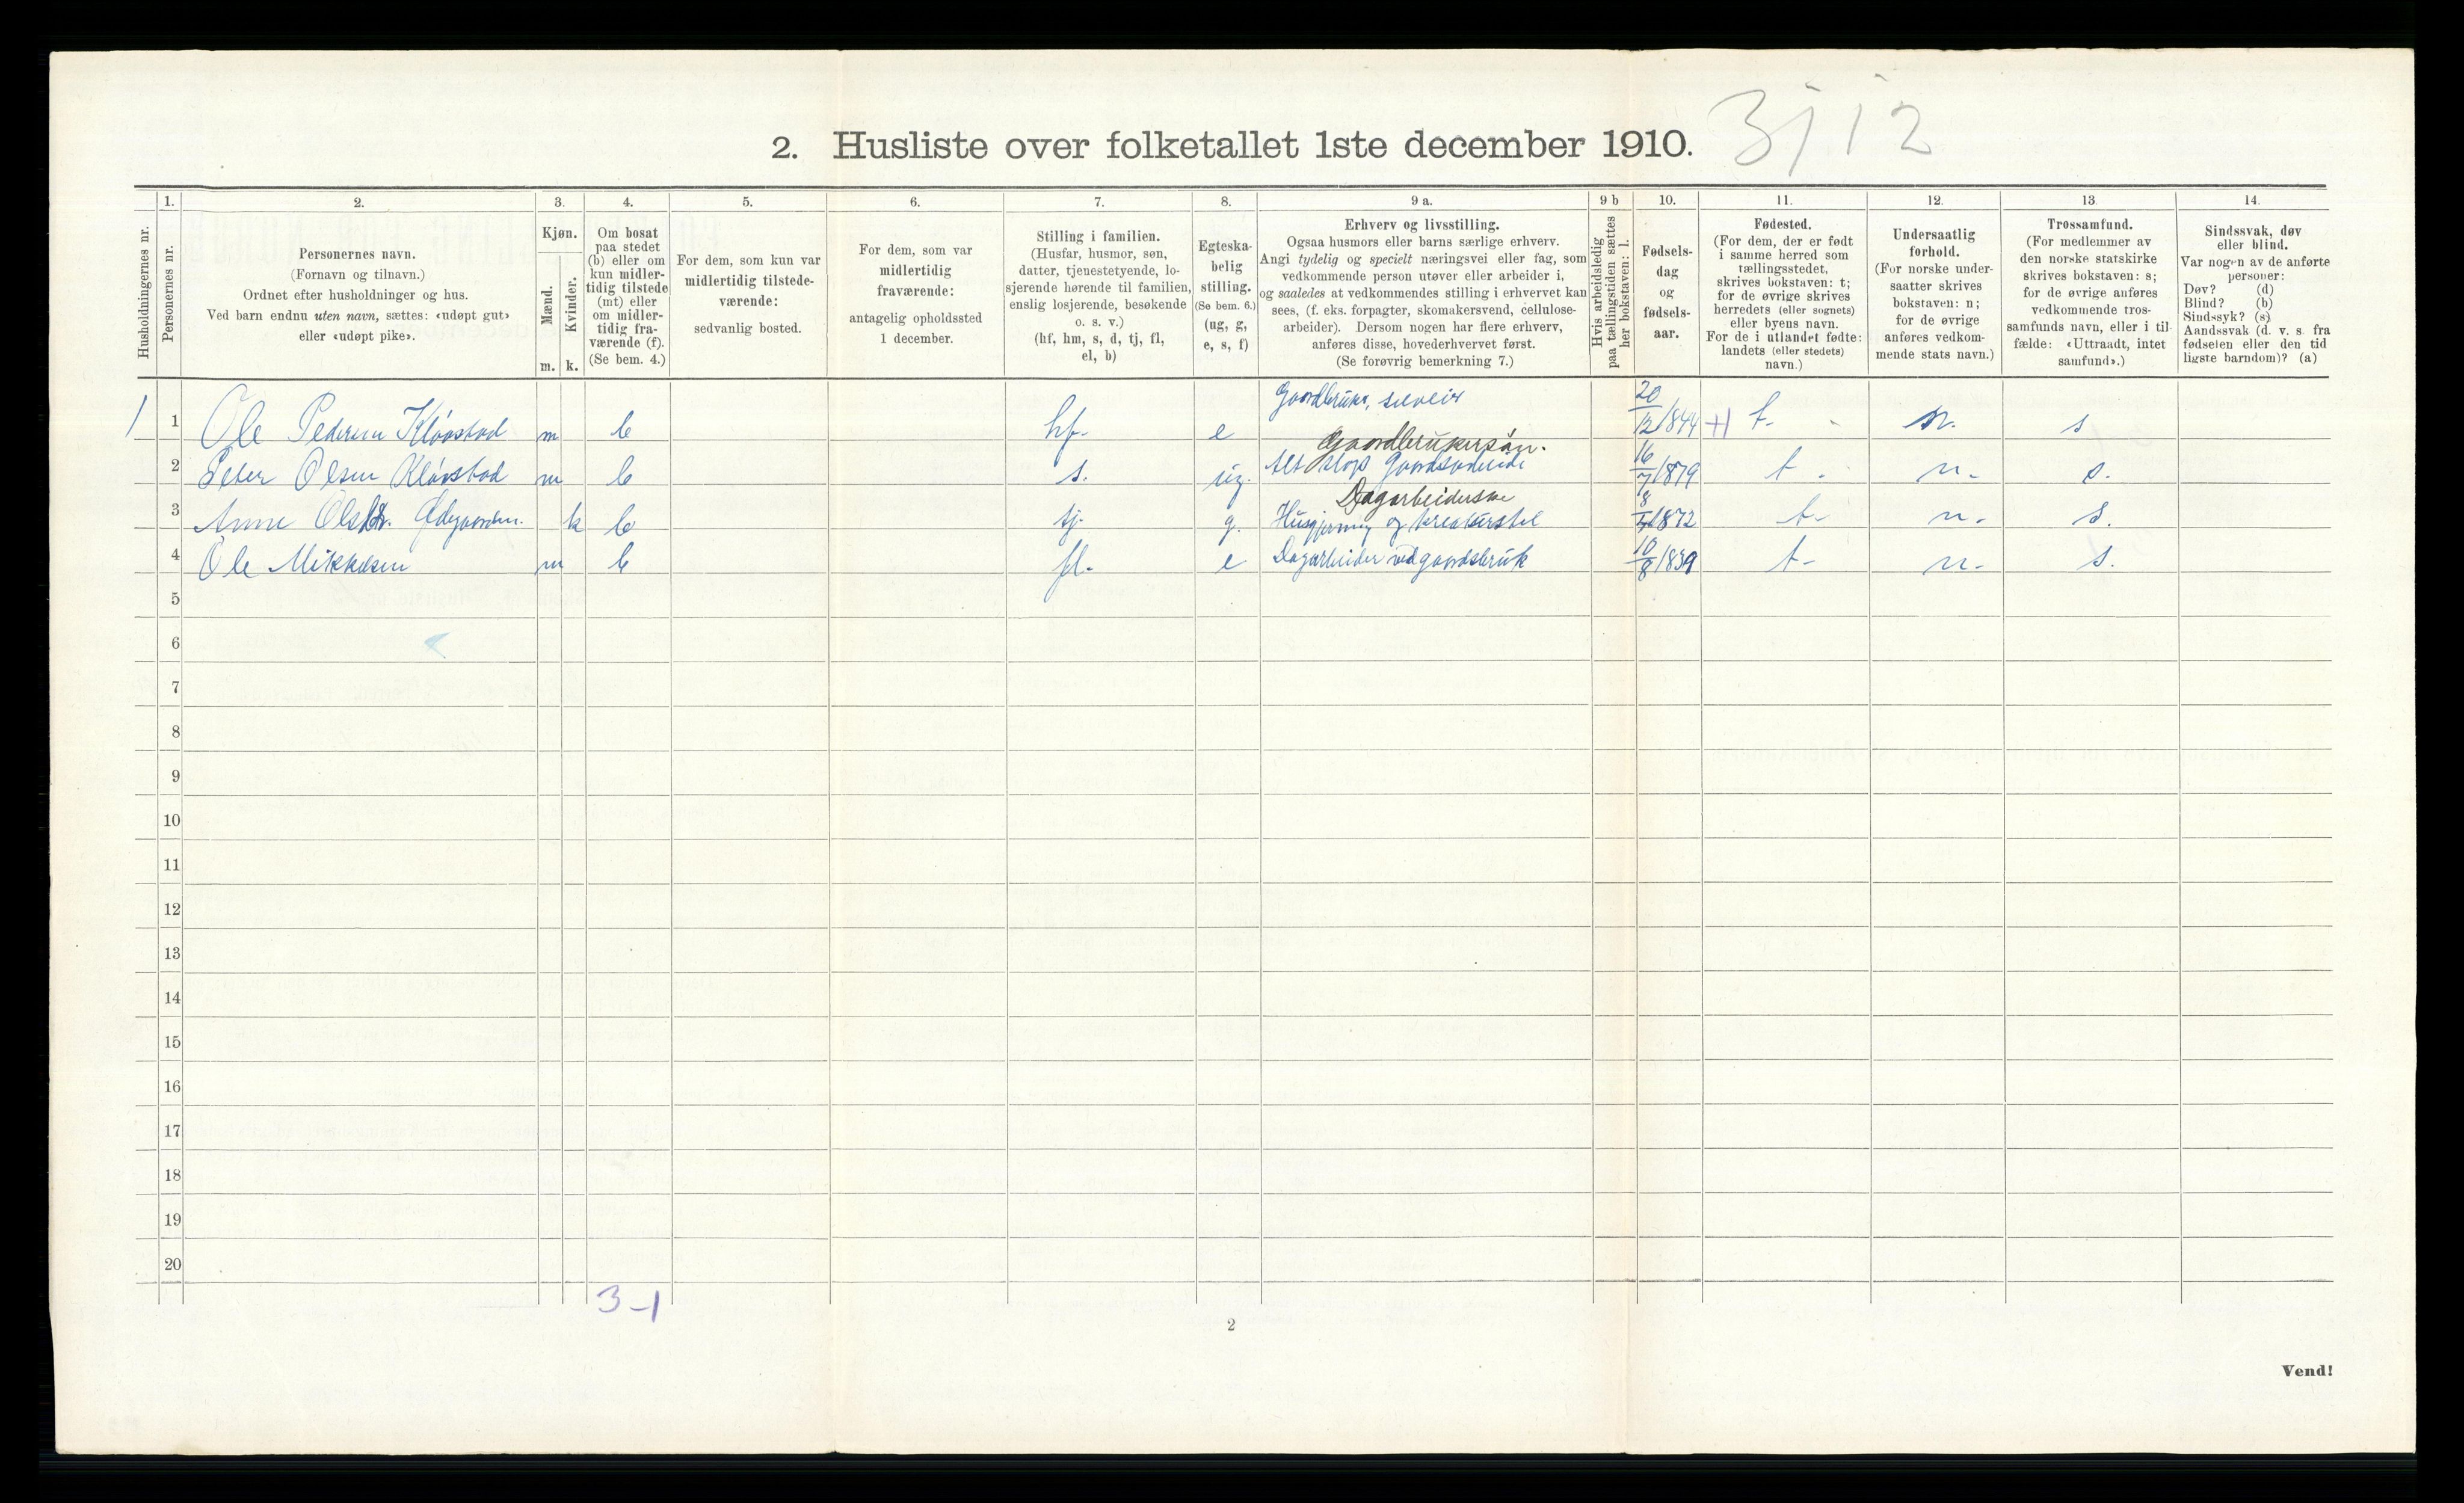 3/12
2. Husliste over folketallet 1ste december 1910.
Husholdningernes nr.
1.
Personernes nr.
2.
Personernes navn.
(Fornavn og tilnavn.)
Ordnet efter husholdninger og hus.
Ved barn endnu uten navn, sættes: «udøpt gut»
eller «udøpt pike».
3.
Kjøn.
Mænd.
Kvinder.
m. k.
4.
Om bosat
paa stedet
(b) eller om
kun midler-
tidig tilstede
(mt) eller
om midler-
tidig fra-
værende (f).
(Se bem. 4.)
5.
For dem, som kun var
midlertidig tilstede-
værende:
sedvanlig bosted.
6.
For dem, som var
midlertidig
fraværende:
antagelig opholdssted
1 december.
7.
Stilling i familien.
(Husfar, husmor, søn,
datter, tjenestetyende, lo-
sjerende hørende til familien,
enslig losjerende, besøkende
o. s. v.)
(hf, hm, s, d, tj, fl,
el, b)
8.
Egteska-
belig
stilling.
(Se bem. 6.)
(ug, g,
e, s, f)
9 a.
Erhverv og livsstilling.
Ogsaa husmors eller barns særlige erhverv.
Angi tydelig og specielt næringsvei eller fag, som
vedkommende person utøver eller arbeider i,
og saaledes at vedkommendes stilling i erhvervet kan
sees, (f. eks. forpagter, skomakersvend, cellulose-
arbeider). Dersom nogen har flere erhverv,
anføres disse, hovederhvervet først.
(Se forøvrig bemerkning 7.)
9 b
Hvis arbeidsledig
paa tællingstiden sættes
her bokstaven: l.
10.
Fødsels-
dag
og
fødsels-
aar.
11.
Fødested.
(For dem, der er født
i samme herred som
tællingsstedet,
skrives bokstaven: t;
for de øvrige skrives
herredets (eller sognets)
eller byens navn.
For de i utlandet fødte:
landets (eller stedets)
navn.)
12.
Undersaatlig
forhold.
(For norske under-
saatter skrives
bokstaven: n;
for de øvrige
anføres vedkom-
mende stats navn.)
13.
Trossamfund.
(For medlemmer av
den norske statskirke
skrives bokstaven: s;
for de øvrige anføres
vedkommende tros-
samfunds navn, eller i til-
fælde: «Uttraadt, intet
samfund».)
14.
Sindssvak, døv
eller blind.
Var nogen av de anførte
personer:
Døv? (d)
Blind? (b)
Sindssyk? (s)
Aandssvak (d. v. s. fra
fødselen eller den tid
ligste barndom)? (a)
1 1 Ole Pedersen Kløvstad m b hf. e Gaardbruker, selveier 20/12/1844 t. n. s
Gaardbrukersøn.
2 Peter Olsen Kløvstad m b s. ug. Alt slags Gaardsarbeide 16/7/1879 t. n. s.
Dagarbeiderske
3 Anne Olsdtr. Ødegaarden. k b tj. g. Husgjerning og kreaturstel 1872 t. n. s.
4 Ole Mikkelsen m b fl. e Dagarbeider ved gaardsbruk 10/8/1839 t. n. s.
5
6
7
8
9
10
11
12
13
14
15
16
17
18
19
20
3-1
2
Vend!